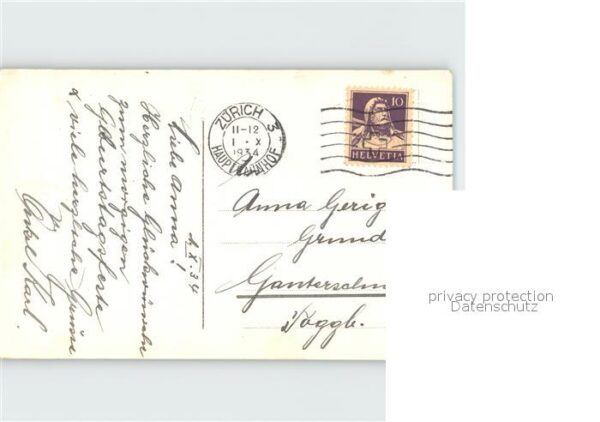 1. X. 34
Liebe Anna!
Herzliche Glückwünsche
zum morgigen
Geburtstagsfeste
& viele herzliche Grüsse
Onkel Karl.
ZÜRICH 3
11-12
1. X
1934
HAUPTBAHNHOF
10
HELVETIA
Anna Gerig
Grund
Ganterschw
Toggb.
privacy protection
Datenschutz